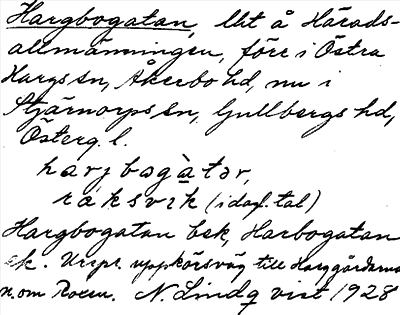 Hargbogatan, lht å Härads-
allmänningen, förr i Östra
Hargs sn, Åkerbo hd, nu i
Stjärnorps sn, Gullbergs hd,
Österg. l.
harjbogàtər,
råksvik (i dagl. tal)
Hargbogatan bek, Harbogatan
ek. Urspr. uppkörsväg till Harggårdarna
n. om Roxen. N. Lindqvist 1928